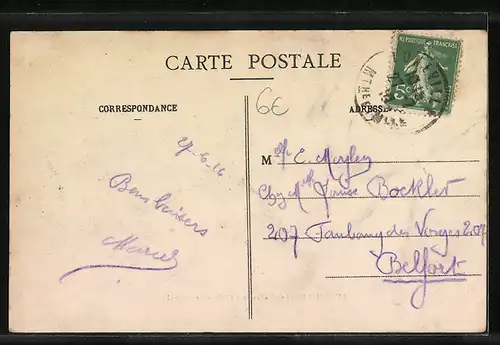 CARTE POSTALE
CORRESPONDANCE
ADRESSE
6€
RÉPUBLIQUE FRANÇAISE
5c
27-6-14
Bons baisers
Marcel
M lle E.
Chez Mme Louise Bockler
207 Faubourg des Vosges 207
Belfort